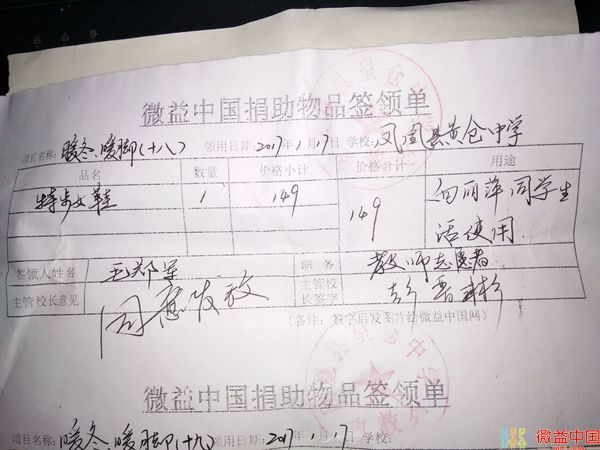 微益中国捐助物品签领单
项目名称:暖冬、暖脚(十八) 领用日期:2017年1月17日 学校:凤凰县黄仓中学
品名 数量 价格小计 价格合计 用途
特步女鞋 1 149 149 向丽萍同学生
活使用
签领人姓名 职务 教师志愿者
主管校长意见 同意发放 主管校
长签字
(备注:签字后发图片给微益中国网)
微益中国捐助物品签领单
项目名称:暖冬、暖脚(十九) 领用日期:2017.1.17 学校:
微益中国